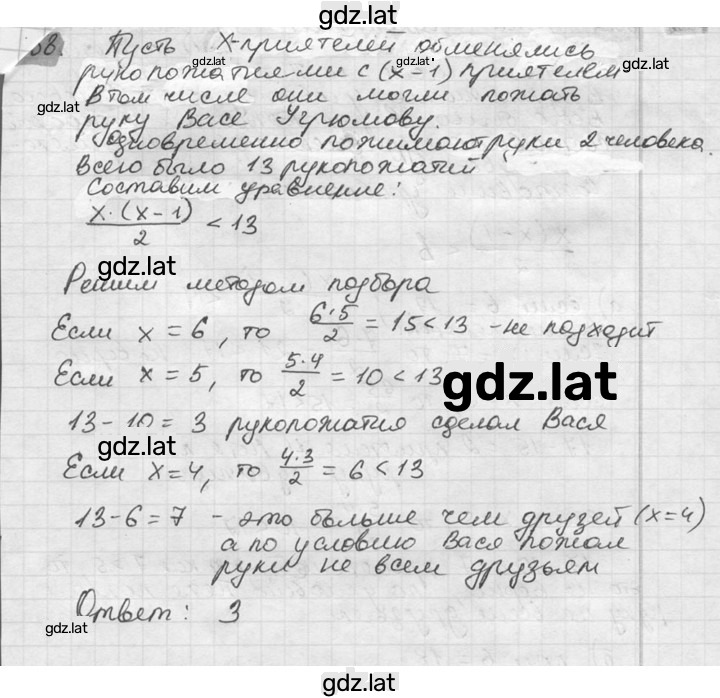 gdz.lat
68. Пусть x-приятелей обменялись
gdz.lat gdz.lat
рукопожатиями с (x-1) приятелем
В том числе они могли пожать
руку Васе Угрюмову.
Одновременно пожимают руки 2 человека.
Всего было 13 рукопожатий
gdz.lat gdz.lat
Составим уравнение:
x·(x-1)/2 < 13
gdz.lat
Решим методом подбора
gdz.lat
Если x = 6, то 6·5/2 = 15 < 13 - не подходит
Если x = 5, то 5·4/2 = 10 < 13
gdz.lat
13-10 = 3 рукопожатия сделал Вася
gdz.lat
Если x=4, то 4·3/2 = 6 < 13
13-6=7 - это больше чем друзей (x=4)
gdz.lat
а по условию Вася пожал
руки не всем друзьям
Ответ: 3
gdz.lat gdz.lat
gdz.lat